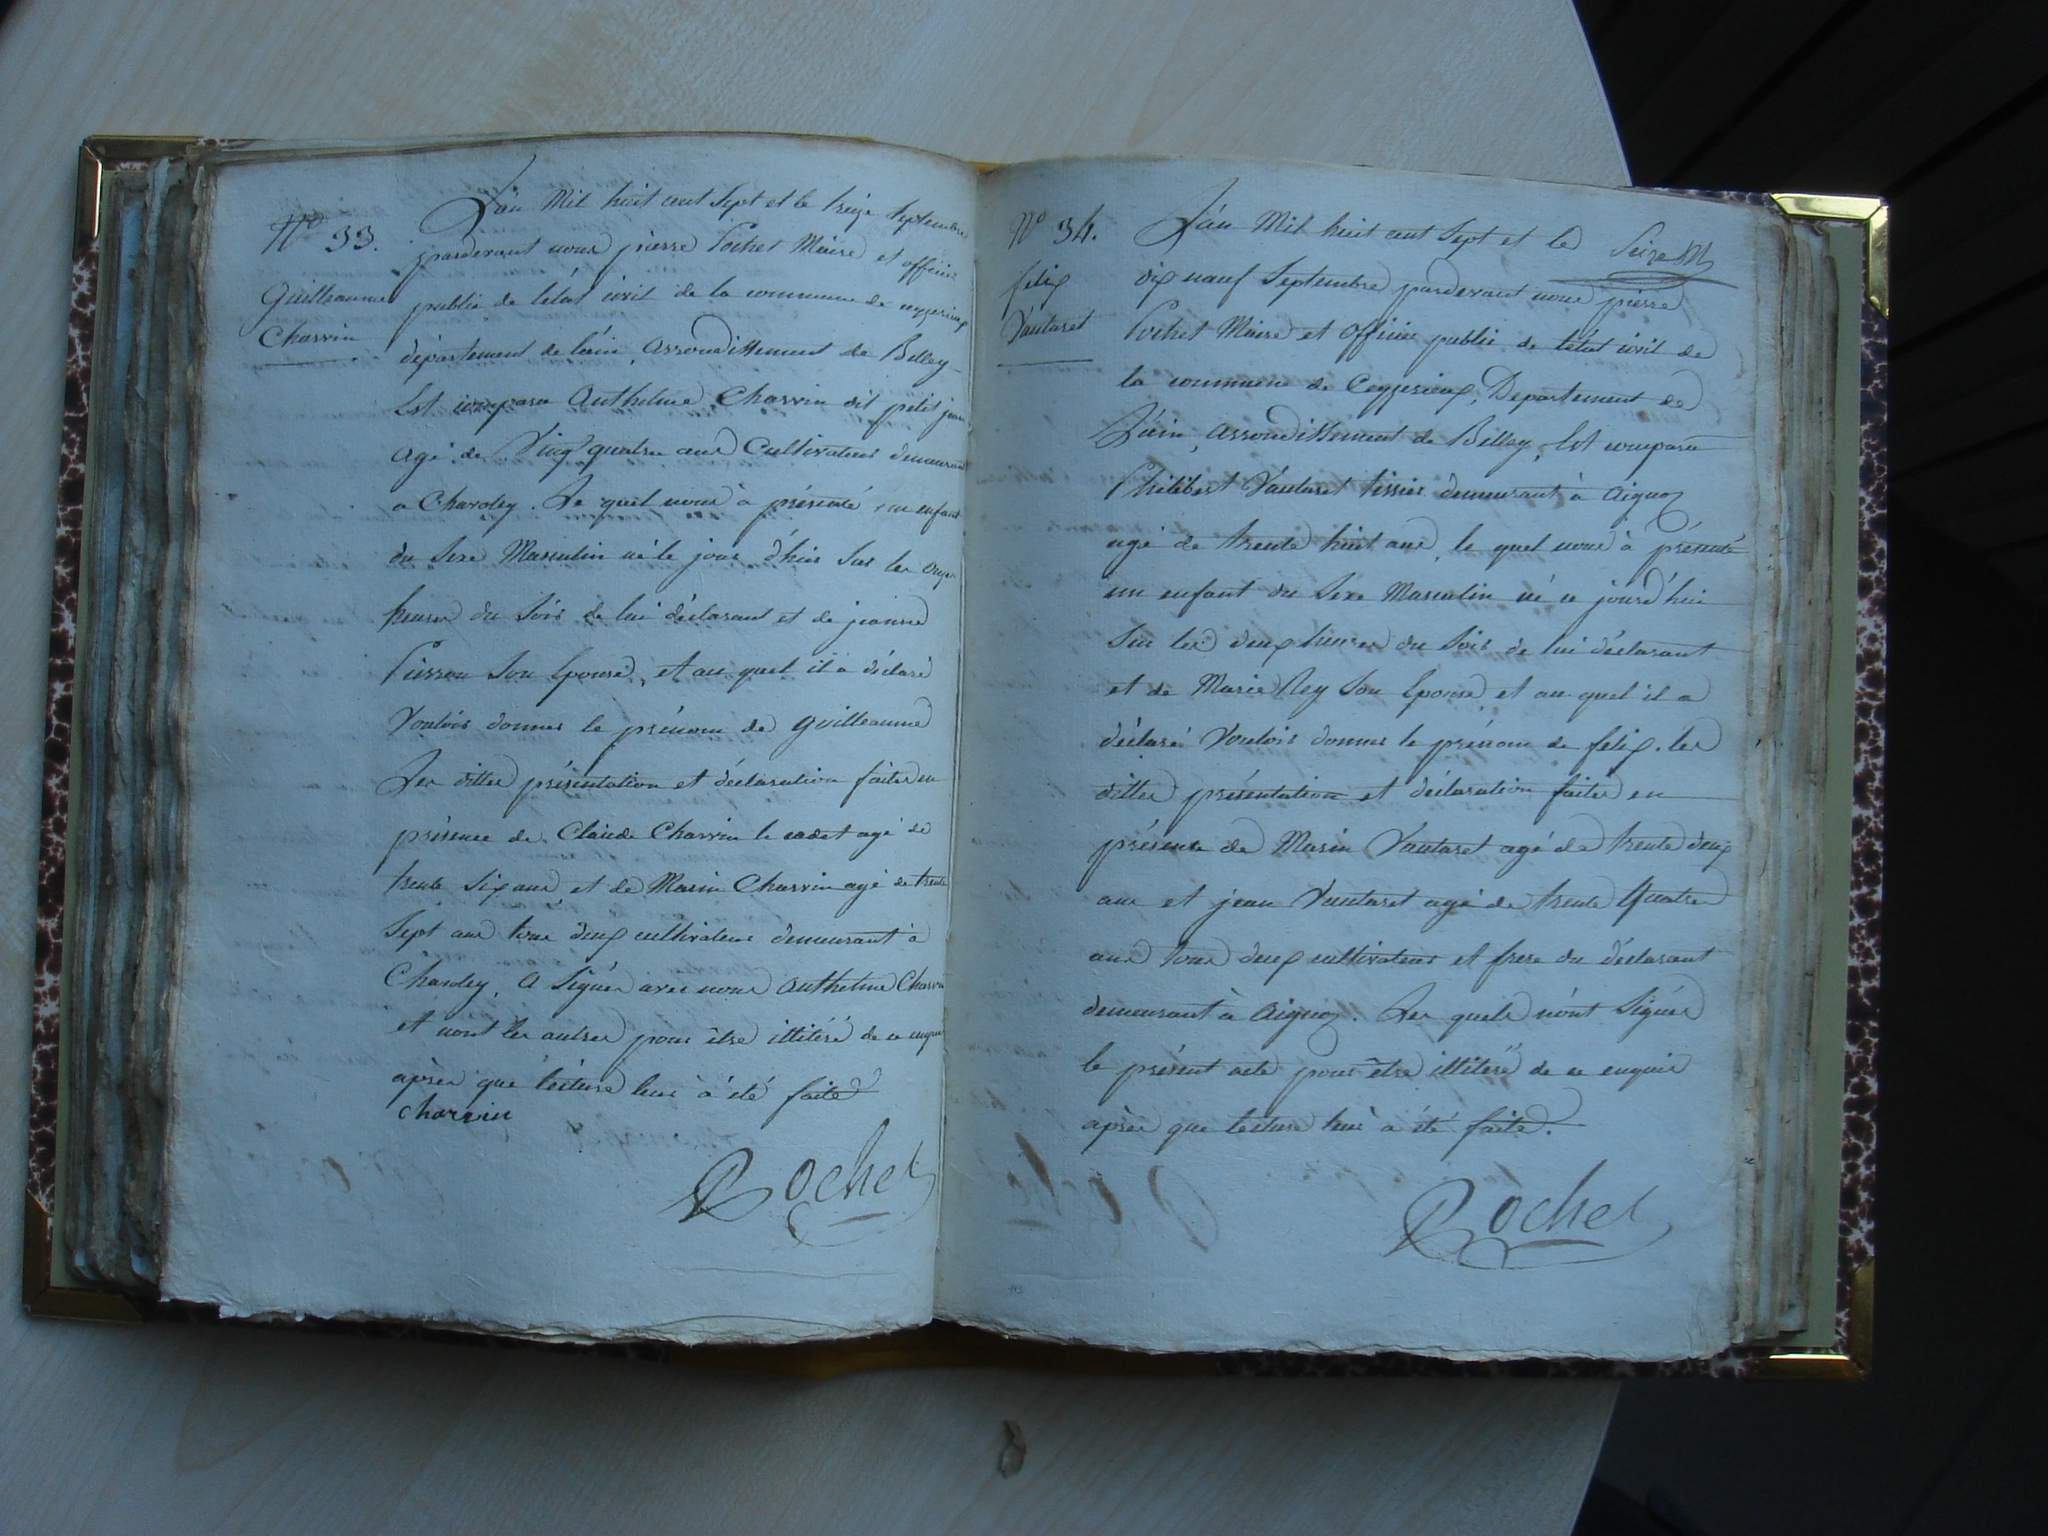 N° 33.
Guilleaume
Charvin
L'an Mil huit cent Sept et le treize Septembre
pardevant nous pierre Pochet Maire et officier
public de l'état civil de la commune de ceyzerieux
département de l'ain, arrondissement de Belley
Est comparu Anthelme Charvin dit petit jean
agé de Vingt quatre ans Cultivateur demeurant
a Charoley. Le quel nous à présenté un enfant
du Sexe Masculin né le jour d'hui Sur les onze
heures du Soir de lui déclarant et de jeanne
Son Epouse, et au quel il a déclaré
Vouloir donner le prénom de guilleaume
Les dittes présentation et déclaration faites en
présence de Claude Charvin le cadet agé de
trente Six ans, et de Marin Charvin agé de trente
Sept ans tous deux cultivateurs demeurant à
Charoley, a Signé avec nous Anthelme Charvin
et non les autres pour être illitéré de ce enquis
après que lécture leur à été faite
charvin
Pochet
N° 34.
felix
Vautaret
L'an Mil huit cent Sept et le Seize
dix neuf Septembre pardevant nous pierre
Pochet Maire et officier public de l'état civil de
la commune de Ceyzerieux, Département de
L'ain, arrondissement de Belley, Est comparu
Philibert Vautaret tissier demeurant à aignoz
agé de trente huit ans, le quel nous à présenté
un enfant du Sexe Masculin né ce jourd'hui
Sur les deux heures du Soir de lui déclarant
et de Marie Rey Son Epouse, et au quel il a
déclaré Vouloir donner le prénom de felix. les
dittes présentation et déclaration faites en
présence de Marin Vautaret agé de trente deux
ans et jean Vautaret agé de trente quatre
ans tous deux cultivateurs et frere du déclarant
demeurant à aignoz. Les quels n'ont Signés
le présent acte pour être illitéré de ce enquis
après que lécture leur à été faite.
Pochet